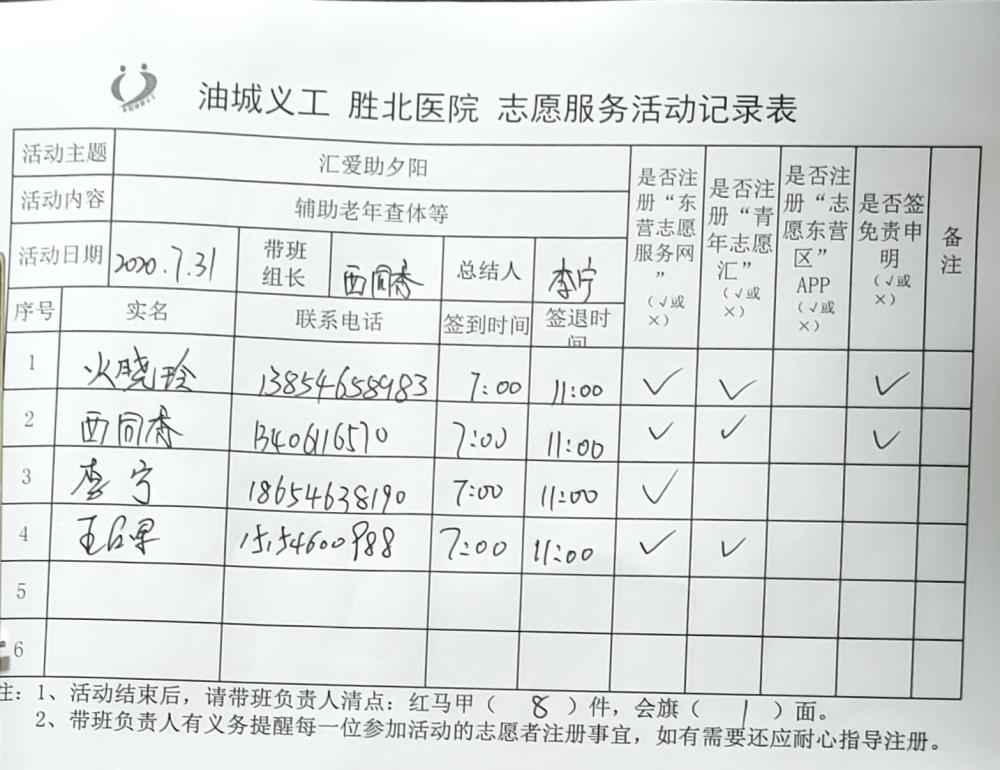 油城义工 胜北医院 志愿服务活动记录表
活动主题 汇爱助夕阳
活动内容 辅助老年查体等
活动日期 2020.7.31 带班组长 西同香 总结人 李宁
序号 实名 联系电话 签到时间 签退时间 是否注册“东营志愿服务网” (√或×) 是否注册“青年志愿汇” (√或×) 是否注册“志愿东营区” APP (√或×) 是否签免责申明 (√或×) 备注
1 火晓玲 13854658983 7:00 11:00 √ √ √
2 西同香 13406116570 7:00 11:00 √ √ √
3 李宁 18654638190 7:00 11:00 √
4 王 15154600988 7:00 11:00 √ √
5
6
注：1、活动结束后，请带班负责人清点：红马甲（ 8 ）件，会旗（ 1 ）面。
2、带班负责人有义务提醒每一位参加活动的志愿者注册事宜，如有需要还应耐心指导注册。